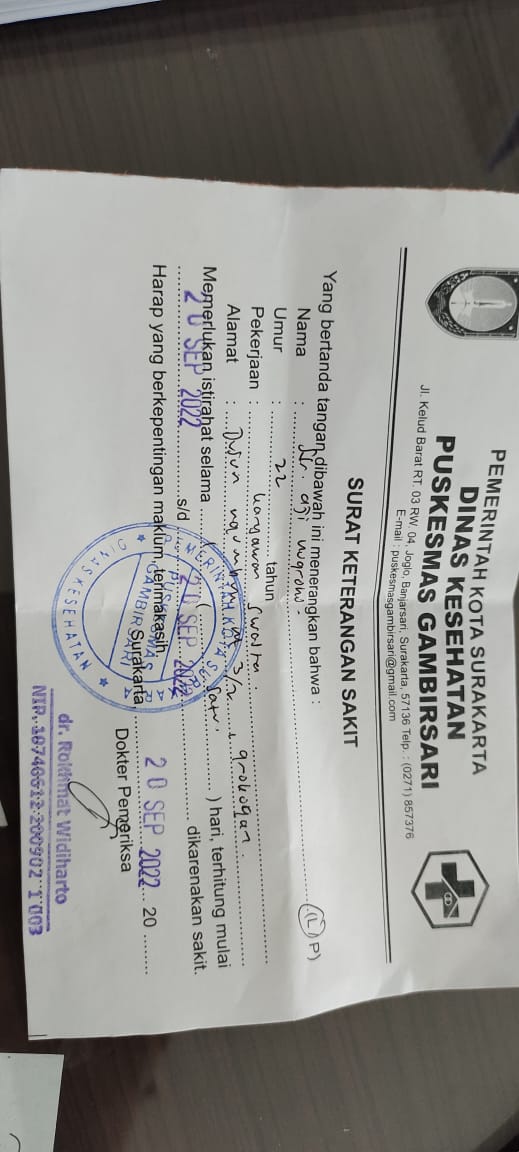 PEMERINTAH KOTA SURAKARTA
DINAS KESEHATAN
PUSKESMAS GAMBIRSARI
Jl. Kelud Barat RT. 03 RW. 04, Joglo, Banjarsari, Surakarta, 57136 Telp. : (0271) 857376
E-mail : puskesmasgambirsari@gmail.com
SURAT KETERANGAN SAKIT
Yang bertanda tangan dibawah ini menerangkan bahwa :
Nama : aji (L/P)
Umur : 22 tahun
Pekerjaan : karyawan swasta.
Alamat : Dusun 3/2 grobogan.
Memerlukan istirahat selama ( satu ) hari, terhitung mulai
20 SEP 2022 s/d 20 SEP 2022 dikarenakan sakit.
Harap yang berkepentingan maklum, terimakasih.
Surakarta, 20 SEP 2022 20
Dokter Pemeriksa
PEMERINTAH KOTA
PUSKESMAS
GAMBIRSARI
KESEHATAN
dr. Rokhmat Widiharto